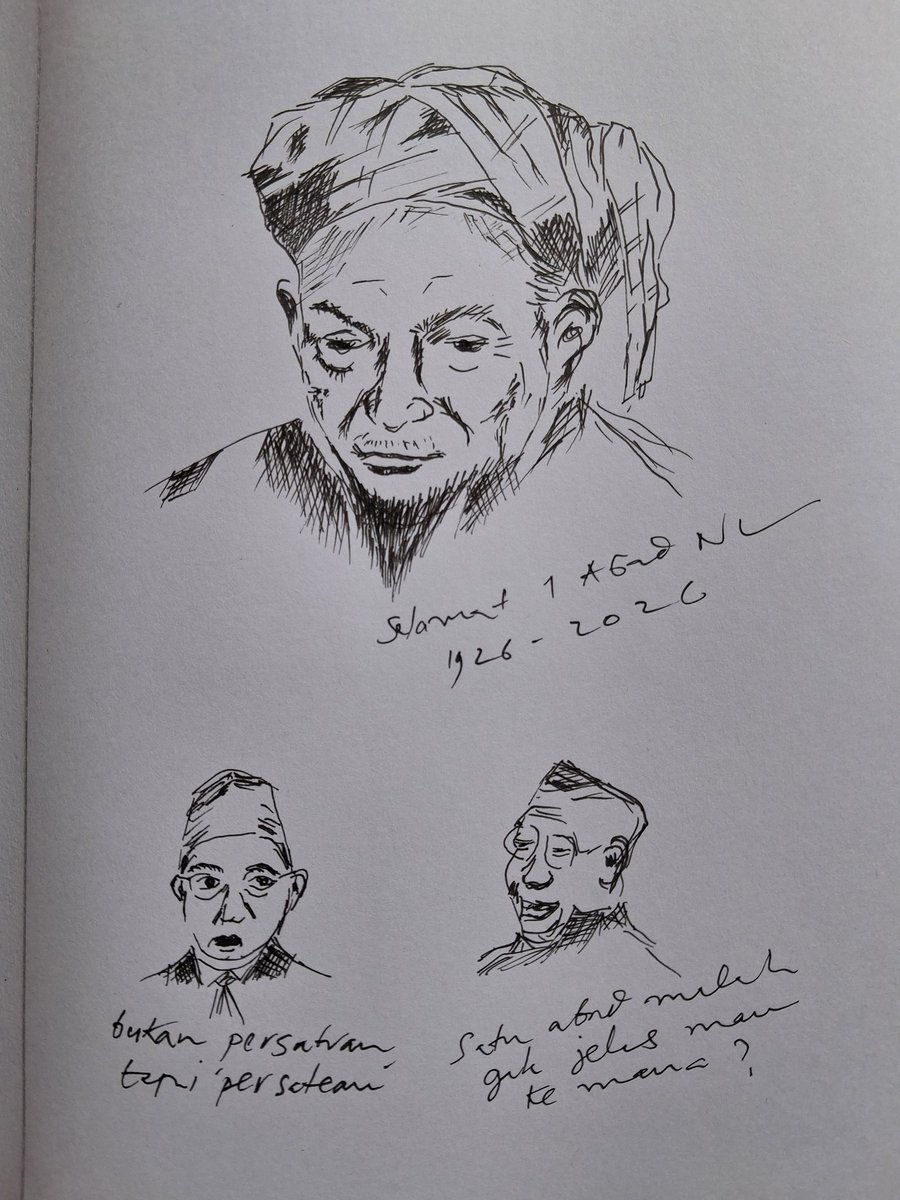 Selamat 1 Abad NU
1926 - 2026
bukan persatuan
tapi 'persatean'
Satu abad malah
gak jelas mau
ke mana?